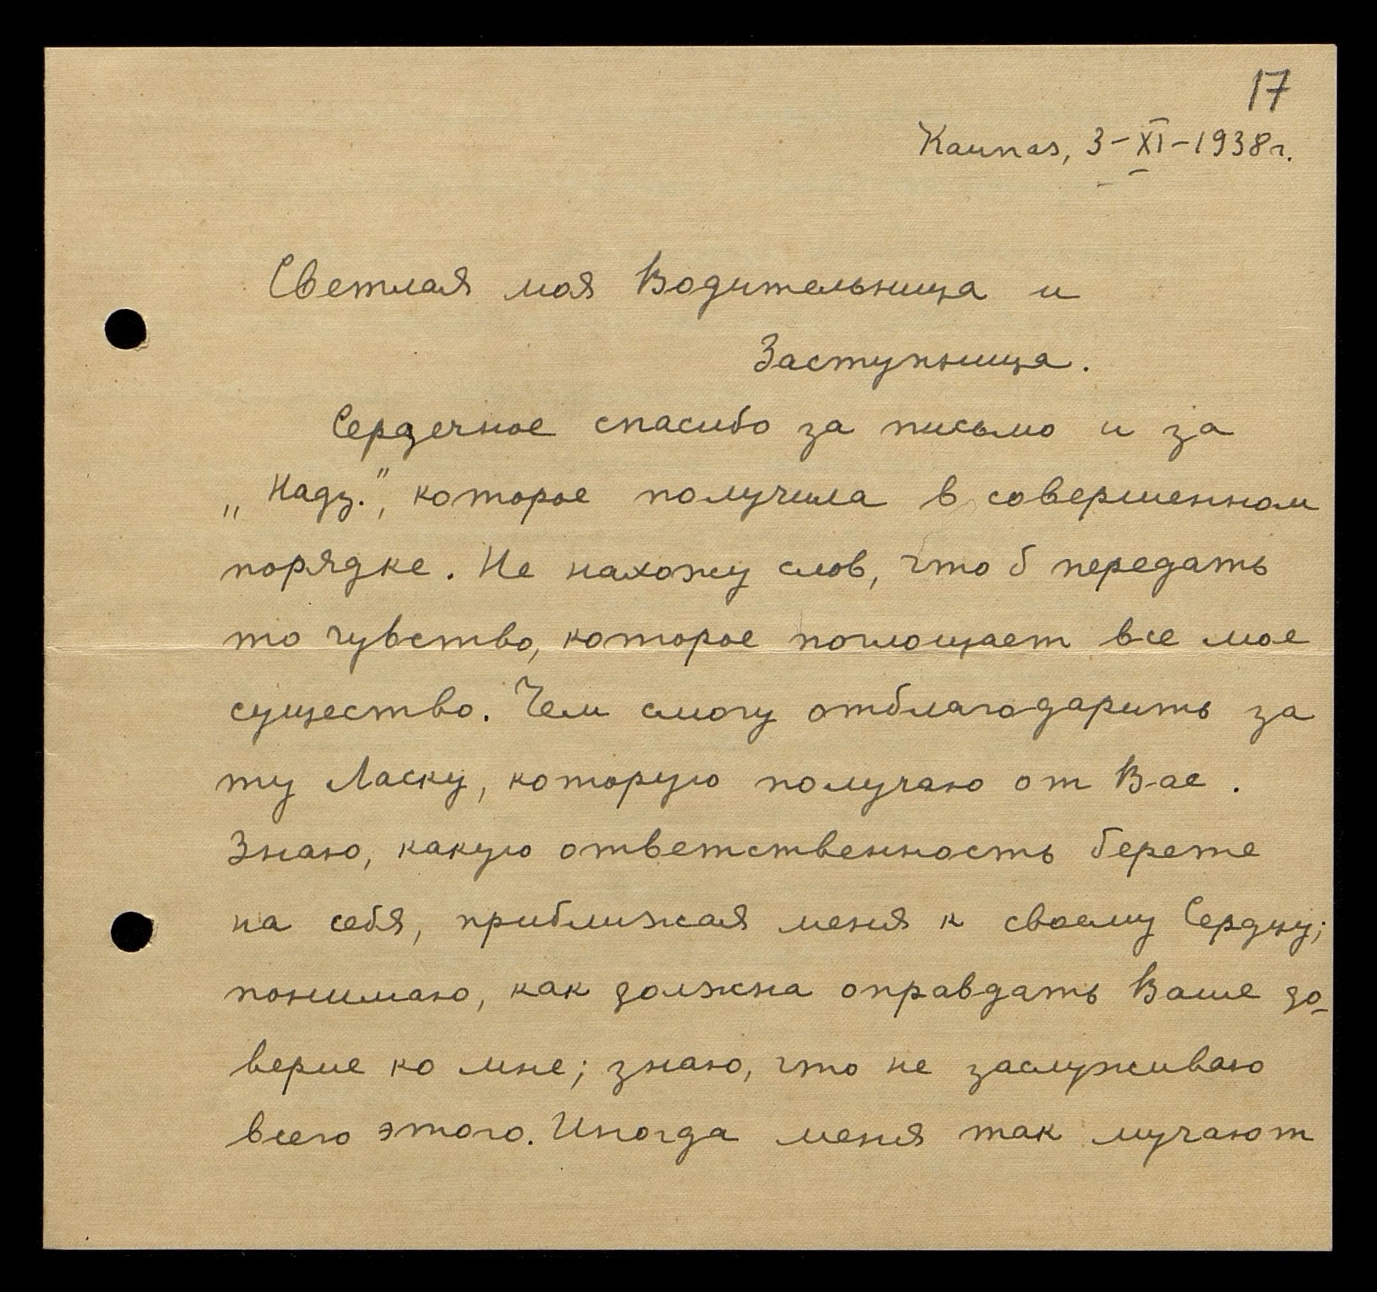 17
Kaunas, 3-XI-1938г.
Светлая моя Водительница и
Заступница.
Сердечное спасибо за письмо и за
„Надз.", которое получила в совершенном
порядке. Не нахожу слов, что б передать
то чувство, которое поглощает все мое
существо. Чем смогу отблагодарить за
ту Ласку, которую получаю от Вас.
Знаю, какую ответственность берете
на себя, приближая меня к своему Сердцу;
понимаю, как должна оправдать Ваше до-
верие ко мне; знаю, что не заслуживаю
всего этого. Иногда меня так мучают